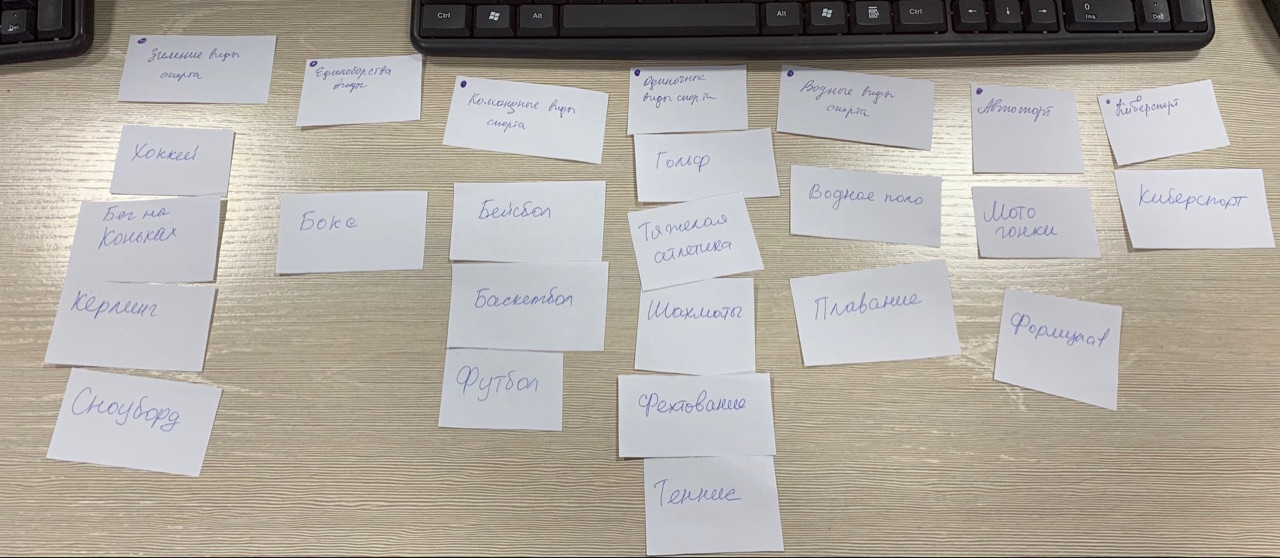 Ctrl
Alt
Alt
Ctrl
0
Ins
Del
Зимние виды
спорта
Хоккей
Бег на
Коньках
Кёрлинг
Сноуборд
Единоборства
Бокс
Командные виды
спорта
Бейсбол
Баскетбол
Футбол
Одиночные
виды спорта
Гольф
Тяжелая
атлетика
Шахматы
Фехтование
Теннис
Водные виды
спорта
Водное поло
Плавание
Автоспорт
Мото
гонки
Формула1
Киберспорт
Киберспорт